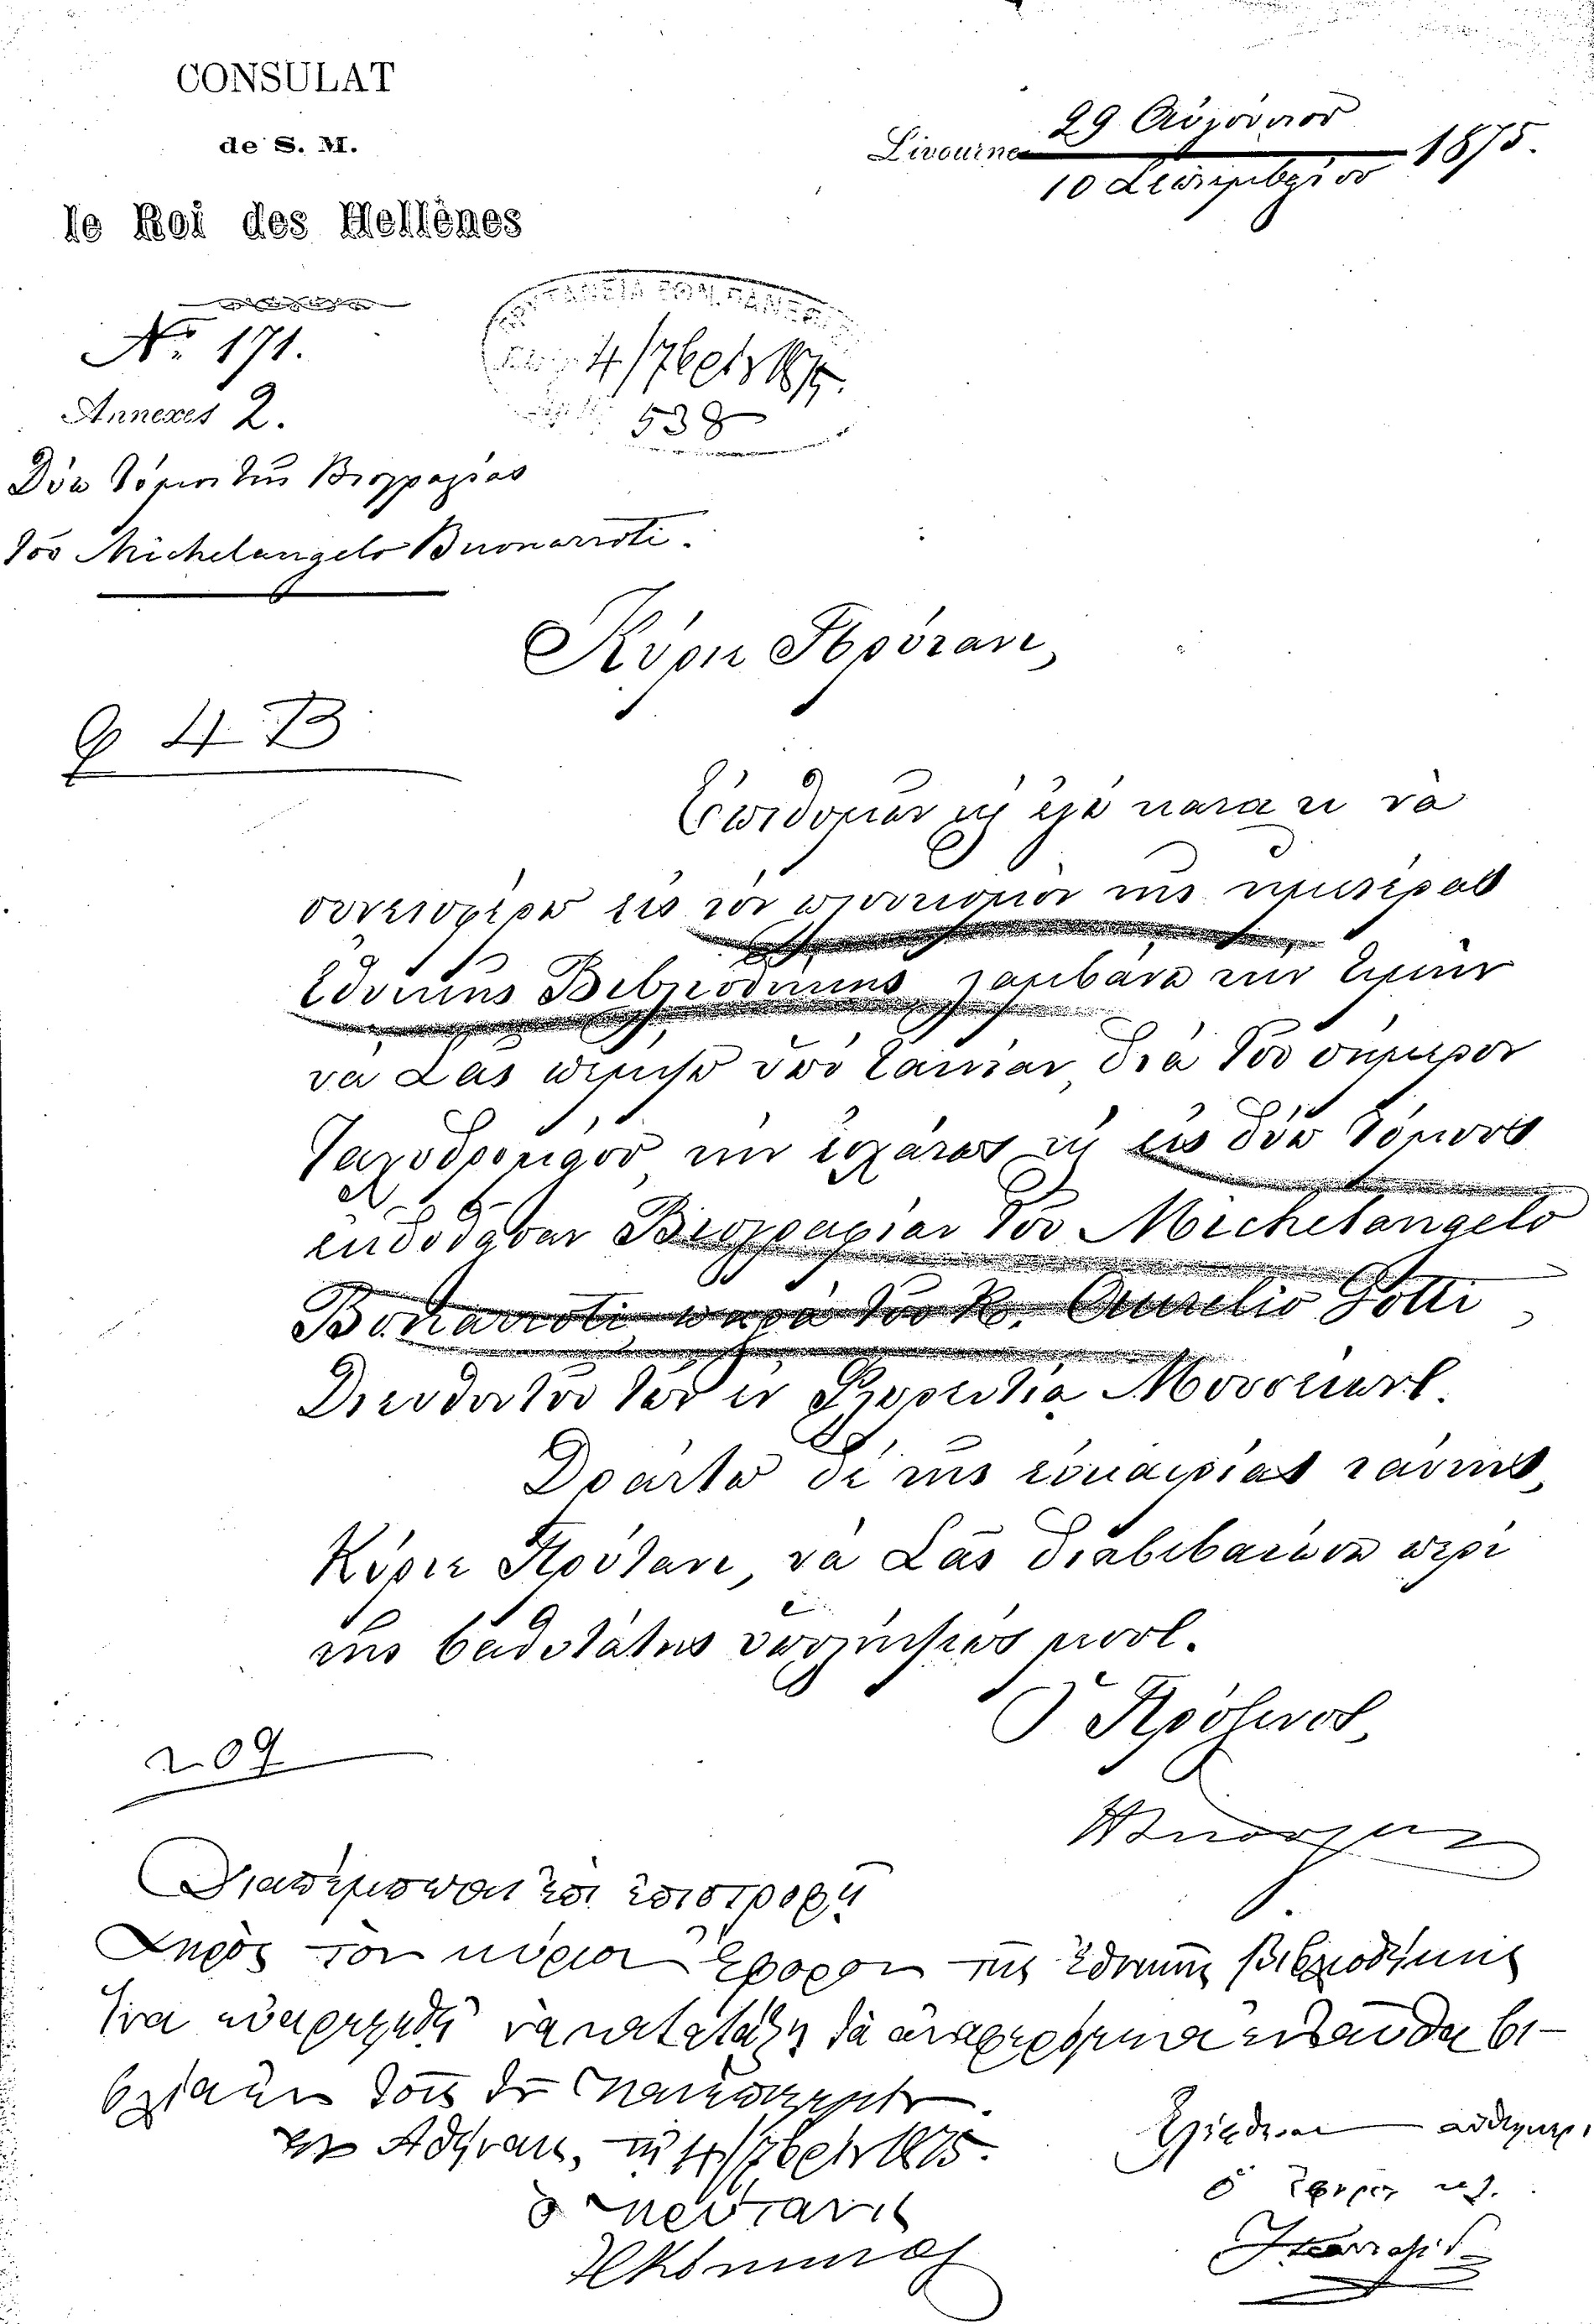 CONSULAT
de S. M.
le Roi des Hellènes
Livourne 29 Αὐγούστου 1875.
10 Σεπτεμβρίου
Nº 171.
Annexes 2.
ΠΡΥΤΑΝΕΙΑ ΕΘΝ. ΠΑΝΕΠΙΣ
4/7βρίου 1875.
538
Δύω τόμοι τῆς Βιογραφίας
τοῦ Michelangelo Buonarroti.
Κύριε Πρύτανι,
4 B
Ἐπιθυμῶν κἠγώ κατά τι νὰ
συνεισφέρω εἰς τὸν πλουτισμὸν τῆς ἡμετέρας
Ἐθνικῆς Βιβλιοθήκης, λαμβάνω τὴν τιμὴν
νὰ Σᾶς πέμψω ὑπὸ ταινίαν, διὰ τοῦ σήμερον
Ταχυδρομείου, τὴν ἐσχάτως κ εἰς δύω τόμους
ἐκδοθεῖσαν Βιογραφίαν τοῦ Michelangelo
Bonarroti, παρὰ τοῦ Κ. Aurelio Gotti,
Διευθυντοῦ τῶν ἐν Φλωρεντίᾳ Μουσείων.
Δράττω δὲ τῆς εὐκαιρίας ταύτης,
Κύριε Πρύτανι, νὰ Σᾶς διαβεβαιώσω περὶ
τῆς βαθυτάτης ὑπολήψεώς μου.
Ὁ Πρόξενος,
209
Διαπέμπεται ἐπὶ ἐπιστροφῇ
πρὸς τὸν κύριον Ἔφορον τῆς Ἐθνικῆς Βιβλιοθήκης
ἵνα εὐαρεστηθῇ νὰ κατατάξῃ τὰ ἀναφερόμενα ἐνταῦθα βι-
βλία ἐν τοῖς τοῦ Πανεπιστημίου.
Ἐν Ἀθήναις, τῇ 4/7βρίου 1875.
ὁ Πρύτανις
Ἐλήφθησαν αὐθημερ.
ὁ Ἔφορος